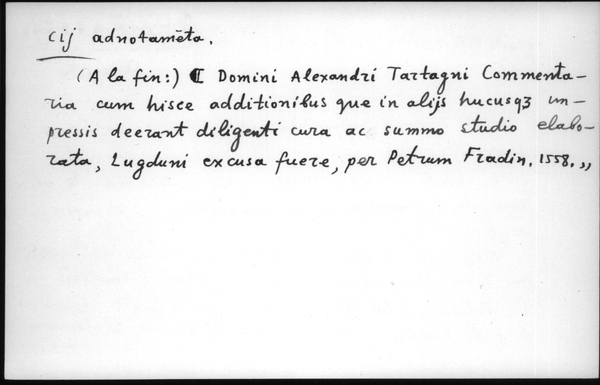 cij adnotamēta.
(A la fin:) ℂ Domini Alexandri Tartagni Commenta-
ria cum hisce additionibus que in alijs hucusqꝫ im-
pressis deerant diligenti cura ac summo studio elabo-
rata, Lugduni excusa fuere, per Petrum Fradin, 1558.,,